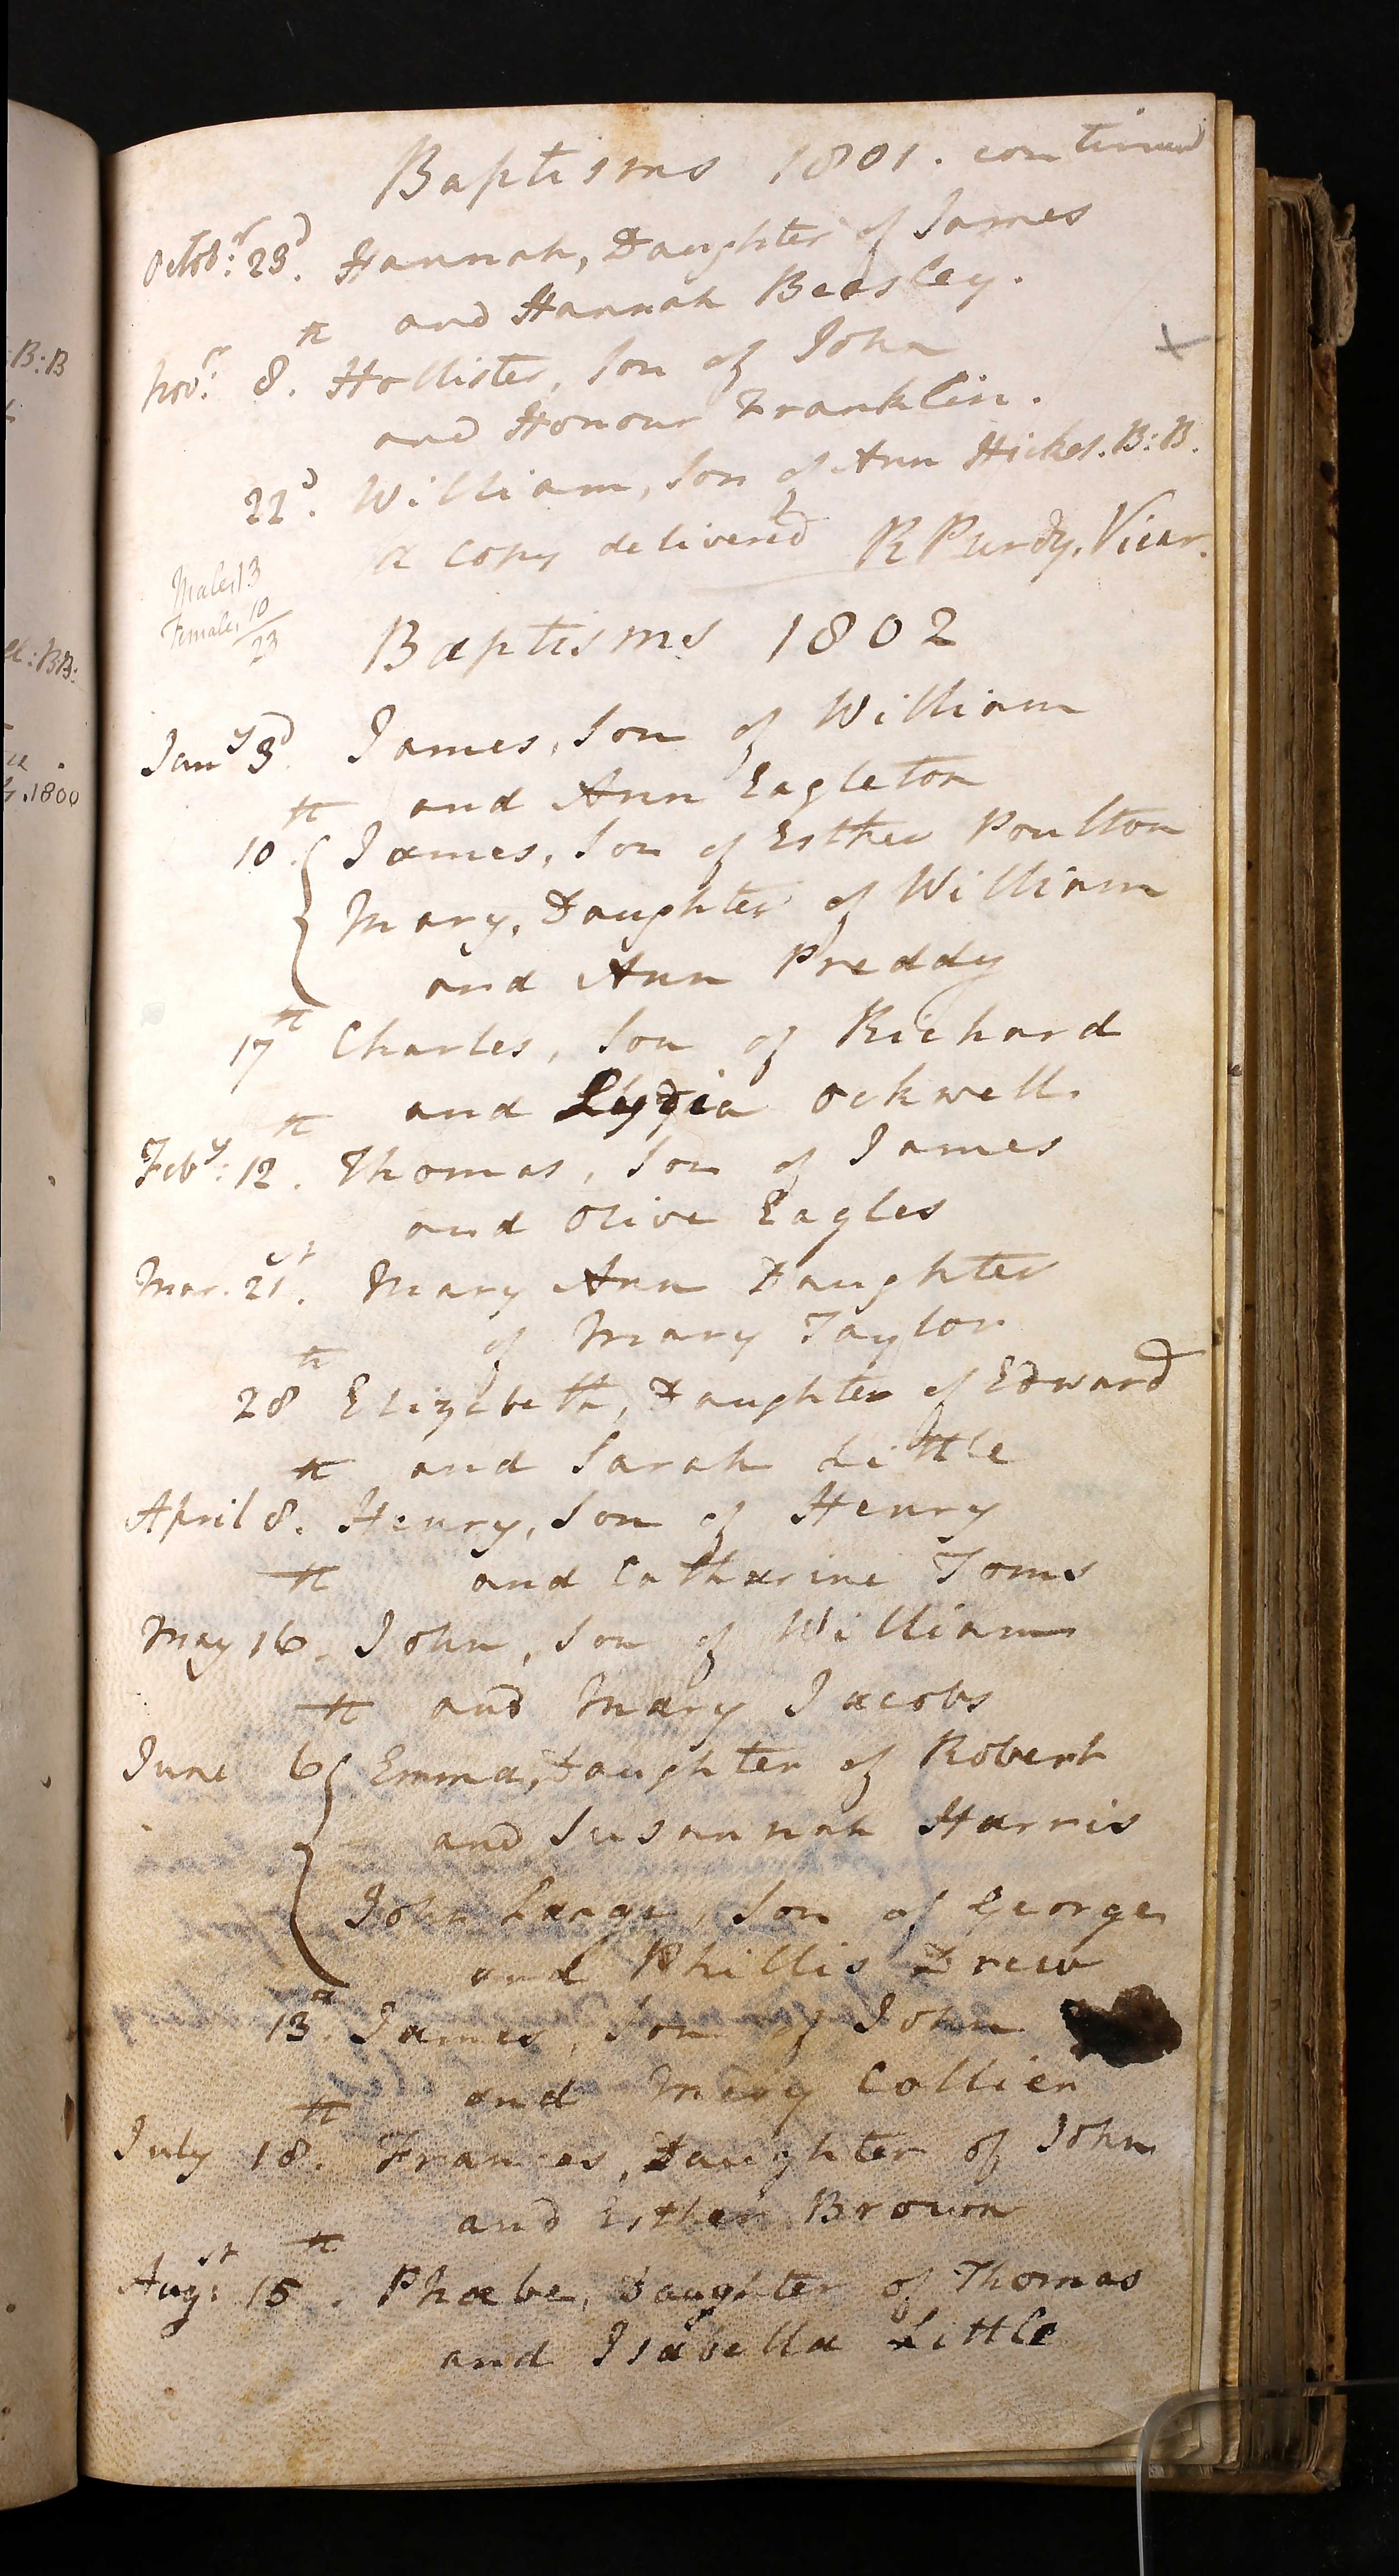 Baptisms 1801. continued
Octobr: 23d. Hannah, Daughter of James
and Hannah Beasley.
Novr: 8th. Hollister, Son of John
and Honour Franklin.
22d. William, Son of Ann Hickes. B:B.
a Copy delivered R Purdy, Vicar.
Males 13
Females 10
23
Baptisms 1802
Jany 3d. James, Son of William
and Ann Eagleton
10th. James, Son of Esther Poulton
Mary, Daughter of William
and Ann Preddy
17th Charles, Son of Richard
and Lydia Ockwell.
Feby: 12th. Thomas, Son of James
and Olive Eagles
Mar. 21st. Mary Ann Daughter
of Mary Taylor
28th Elizabeth, Daughter of Edward
and Sarah Little
April 8th. Henry, Son of Henry
and Catharine Toms
May 16th. John, Son of William
and Mary Jacobs
June 6th Emma, Daughter of Robert
and Susannah Harris
John Lange, Son of George
and Phillis Drew
13th. James, Son of John
and Mary Collier
July 18th. Frances, Daughter of John
and Esther Brown
Augst: 15th. Phoebe, Daughter of Thomas
and Isabella Little
:B:B
:BB:
.1800